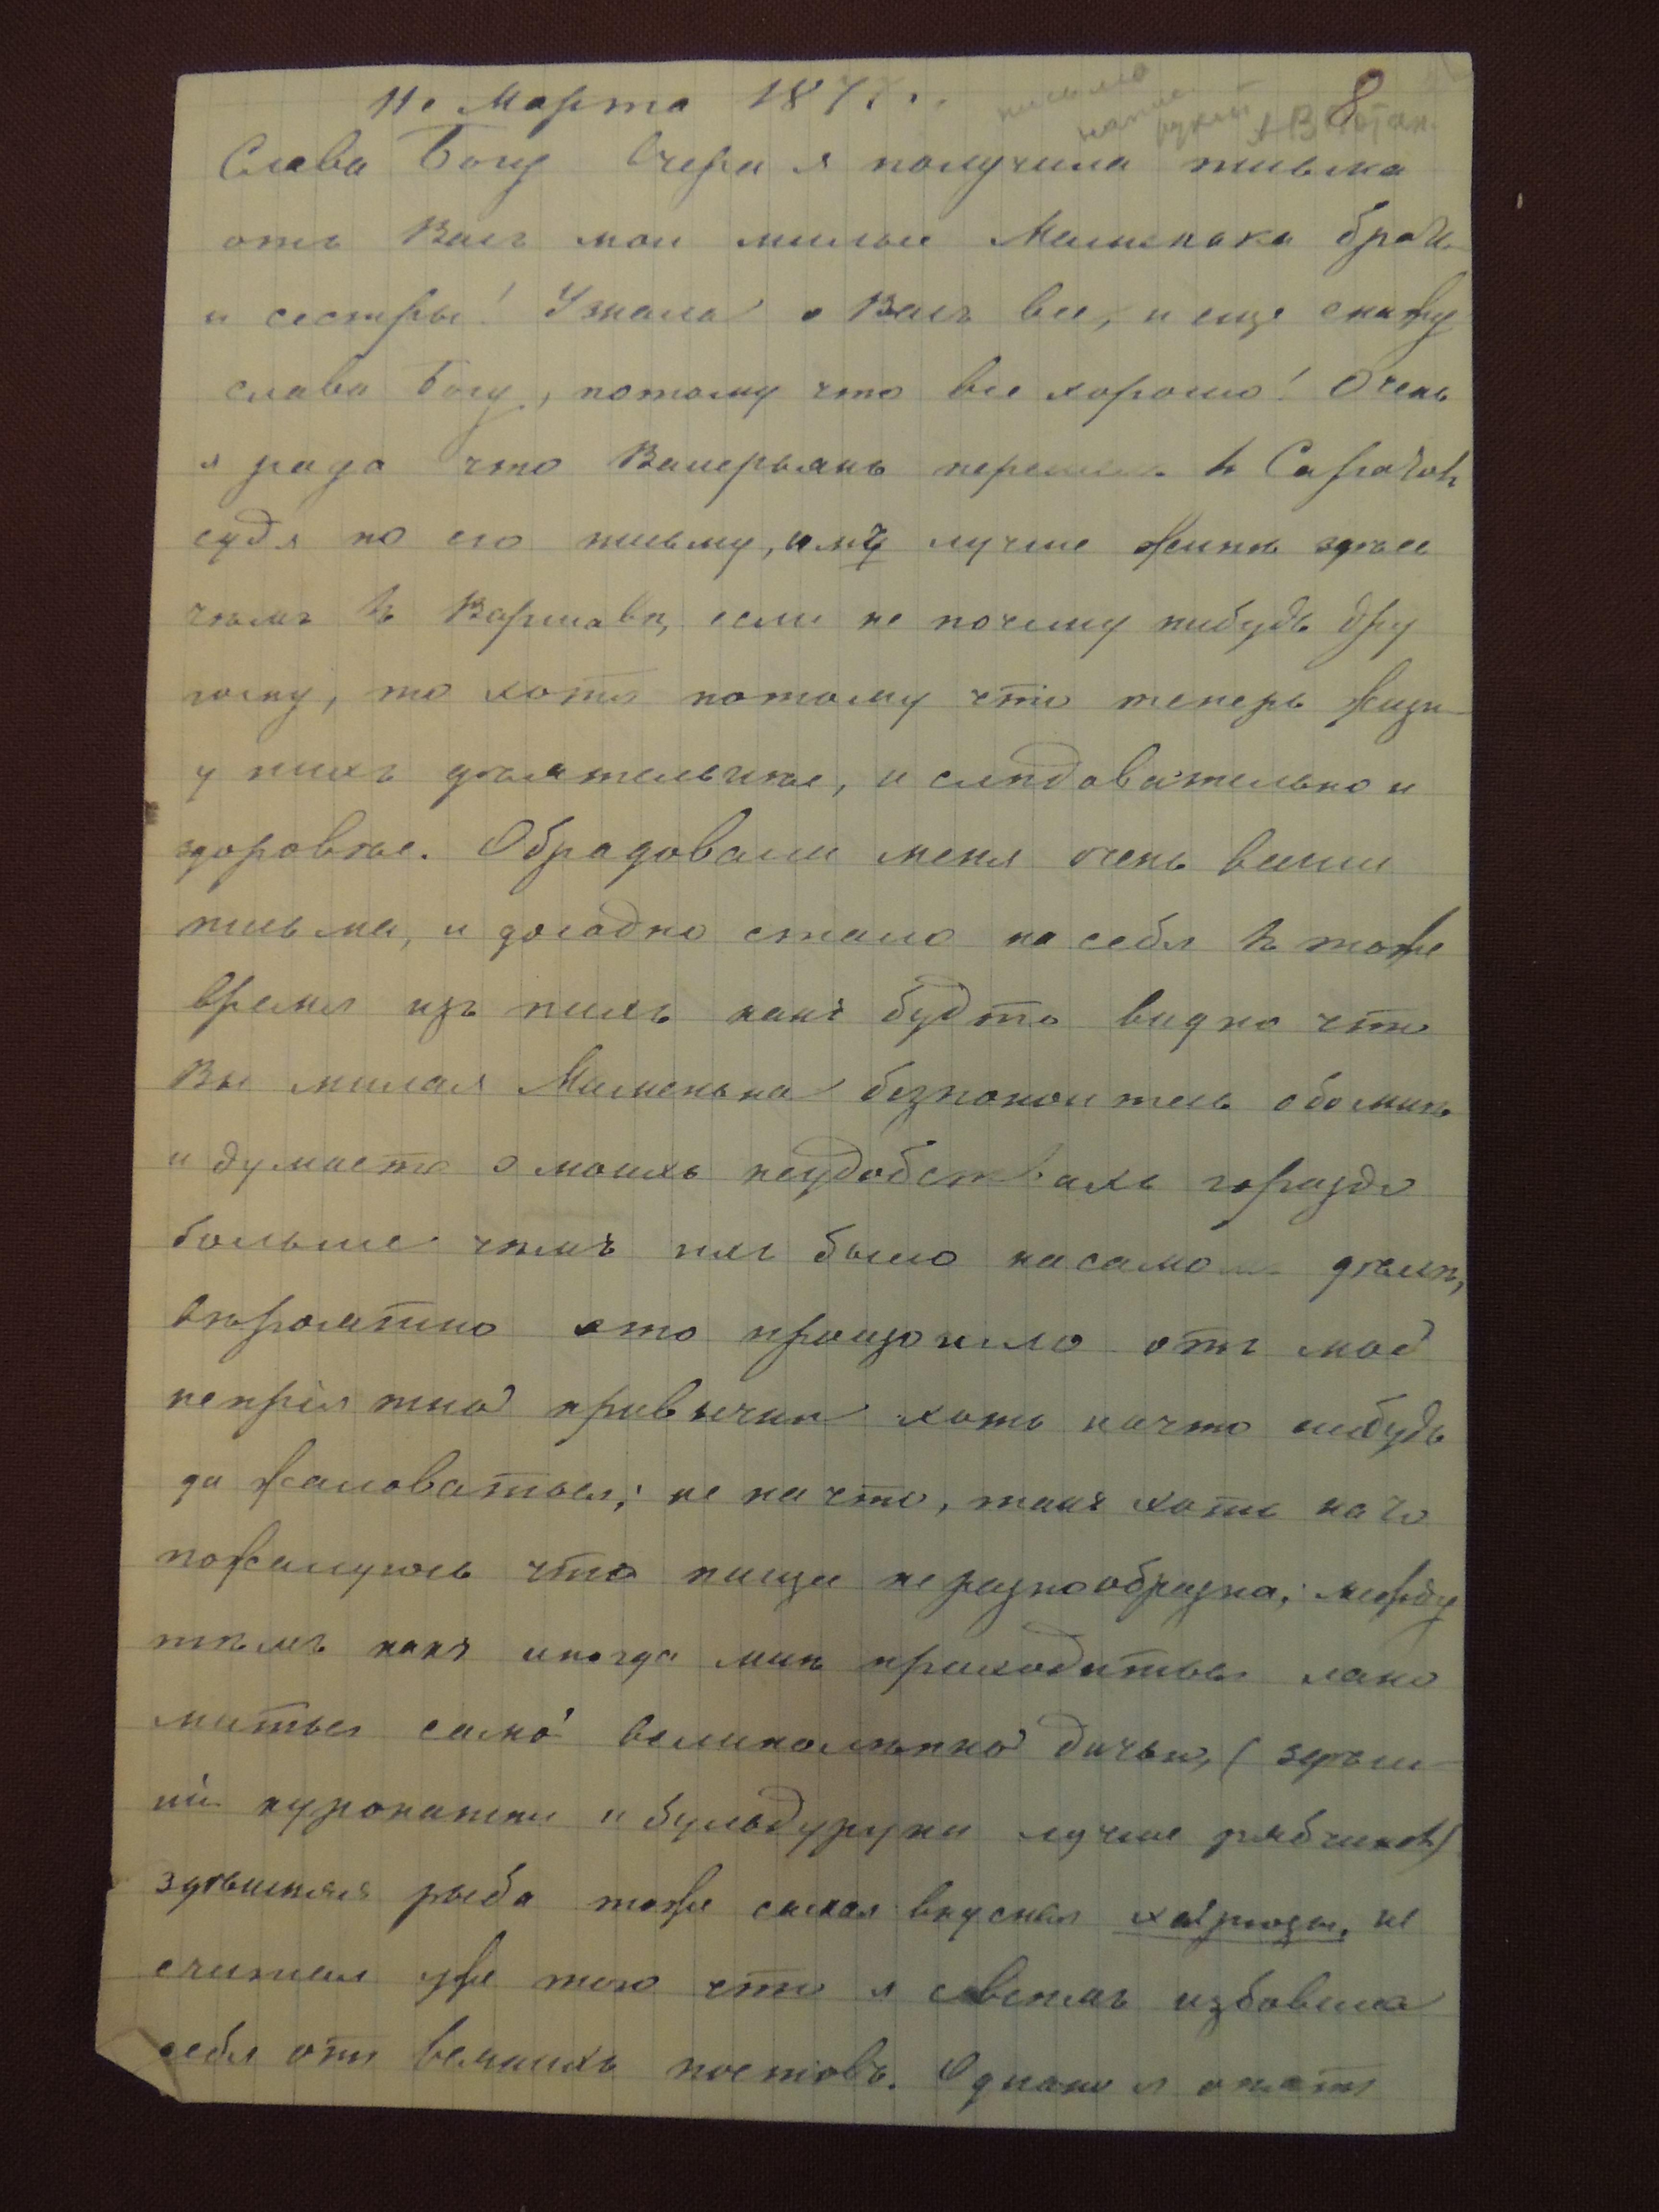 11го Марта 187
письмо
рукой А В Потан.
8
Слава Богу Вчера я получила письма
отъ Васъ мои милые Маменька братъ
и сестры! Узнала о Васъ все, и еще скажу
слава Богу, потому что все хорошо! Очень
я рада что Валерьянъ перешелъ въ Саратовъ
судя по его письму, ему лучше жить здѣсь
чѣмъ въ Варшавѣ, если не почему нибудь дру
гому, то хотя потому что теперь жизнь
у нихъ дѣятельнѣе, и слѣдовательно и
здоровѣе. Обрадовали меня очень ваши
письма, и досадно стало на себя въ тоже
время изъ нихъ какъ будто видно что
Вы милая Маменька безпокоитесь обо мнѣ
и думаете о моихъ неудобствахъ гораздо
больше чѣмъ ихъ было на самомъ дѣлѣ,
вѣроятно это произошло отъ моей
непріятной привычки хоть на что нибудь
да жаловаться; не на что, такъ хоть на то
пожалуюсь что пища неразнообразна; между
тѣмъ какъ иногда мнѣ приходиться лако
миться самой великолѣпной дичью, (здѣш
ніи куропатки и бульдуруки лучше рябчиковъ)
здѣшняя рыба тоже самая вкусная харюзы, не
считая уже того что я совсѣмъ избавила
себя отъ великихъ постовъ. Однако я опять